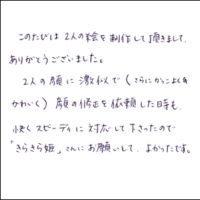 このたびは 2人の絵を制作して頂きまして、
ありがとうございました。
2人の顔に激似で(さらにかっこよく&
かわいく)顔の修正を依頼した時も、
快くスピーディに対応して下さったので
「きらきら姫」さんにお願いして、よかったです。